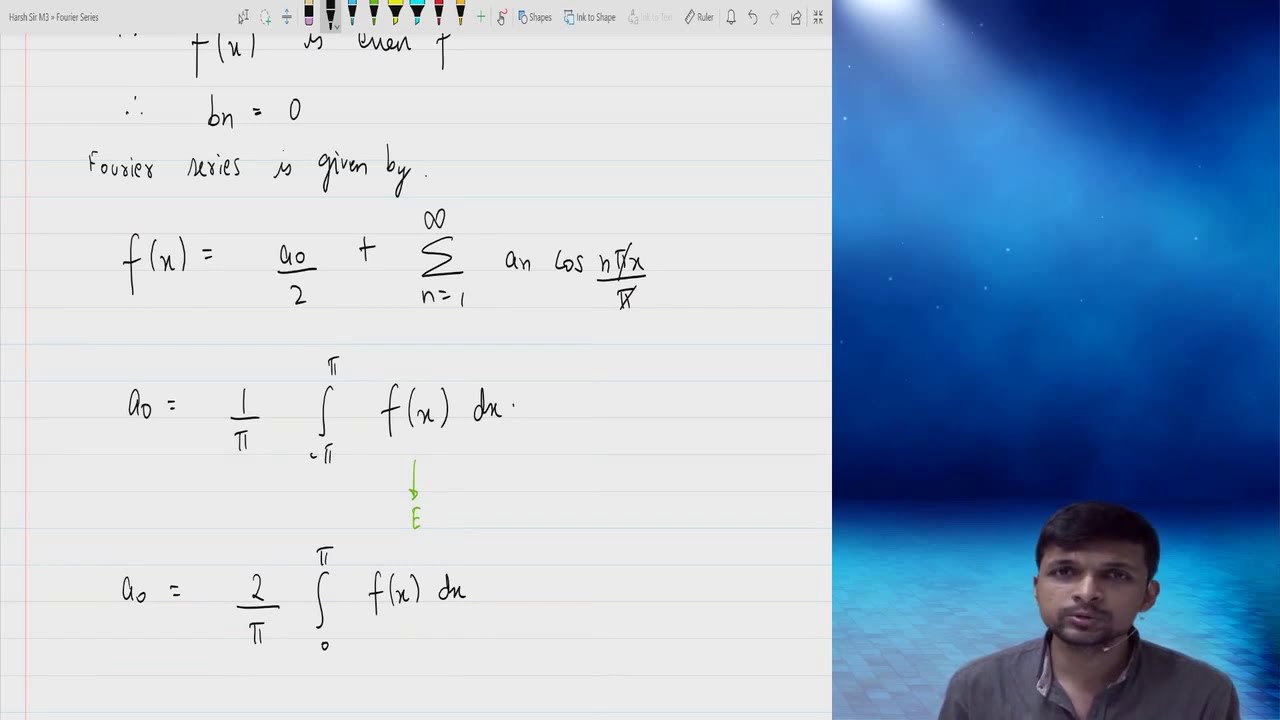 Harsh Sir M3 » Fourier Series
Shapes Ink to Shape Ink to Text Ruler
∴ f(x) is even f
∴ bn = 0
Fourier series is given by.
f(x) = a0/2 + ∞∑n=1 an cos nπx/π
a0 = 1/π ∫-π^π f(x) dx.
E
a0 = 2/π ∫0^π f(x) dx